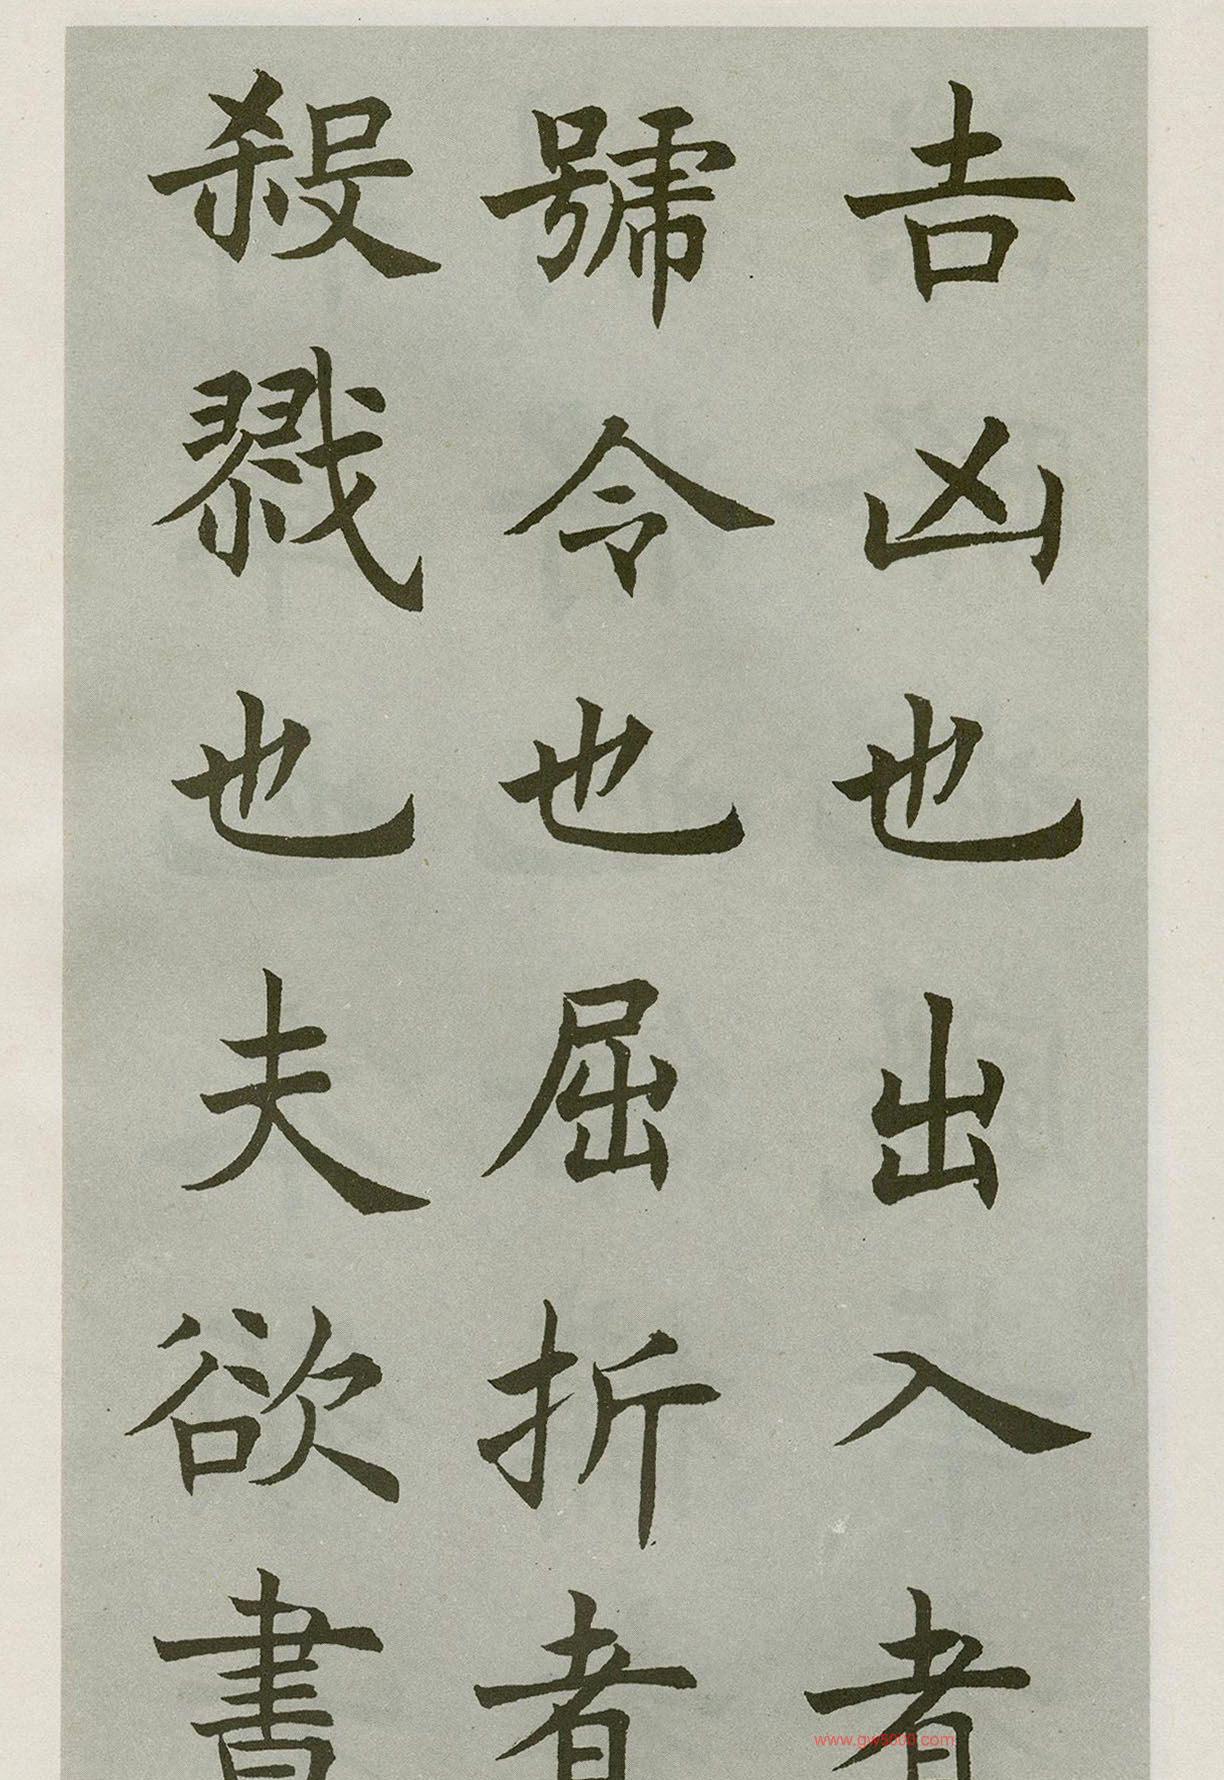 吉凶也出入者
號令也屈折者
殺戮也夫欲書
www.gw5000.com